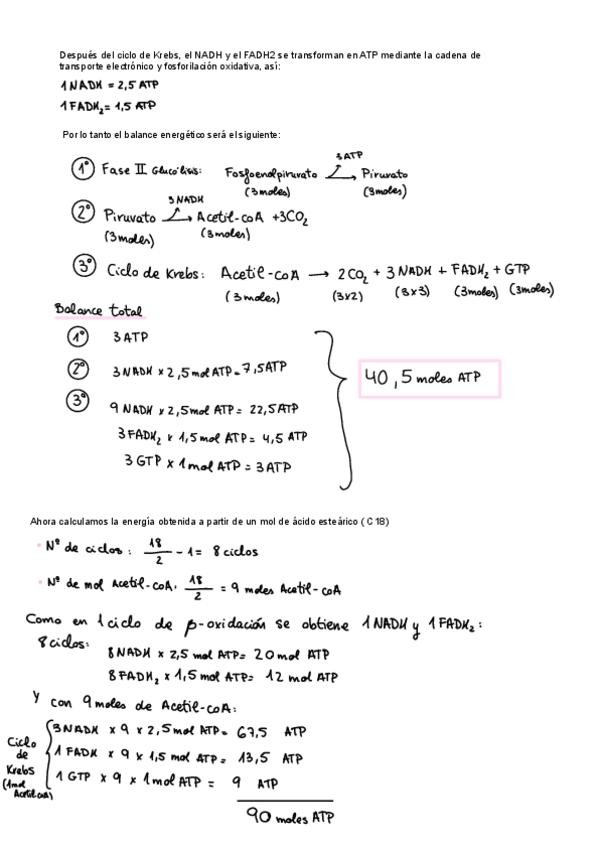 Después del ciclo de Krebs, el NADH y el FADH2 se transforman en ATP mediante la cadena de
transporte electrónico y fosforilación oxidativa, así:
1 NADH = 2,5 ATP
1 FADH₂ = 1,5 ATP
Por lo tanto el balance energético será el siguiente:
3 ATP
1º Fase II Glucólisis: Fosfoenolpiruvato → Piruvato
(3 moles) (3 moles)
3 NADH
2º Piruvato → Acetil-coA + 3CO₂
(3 moles) (3 moles)
3º Ciclo de Krebs: Acetil-coA → 2CO₂ + 3 NADH + FADH₂ + GTP
(3 moles) (3x2) (3x3) (3moles) (3moles)
Balance total
1º 3 ATP
2º 3 NADH x 2,5 mol ATP = 7,5 ATP
3º
9 NADH x 2,5 mol ATP = 22,5 ATP
3 FADH₂ x 1,5 mol ATP = 4,5 ATP
3 GTP x 1 mol ATP = 3 ATP
40,5 moles ATP
Ahora calculamos la energía obtenida a partir de un mol de ácido esteárico ( C 18)
• Nº de ciclos: 18/2 - 1 = 8 ciclos
• Nº de mol Acetil-coA: 18/2 = 9 moles Acetil-coA
Como en 1 ciclo de β-oxidación se obtiene 1 NADH y 1 FADH₂:
8 ciclos:
8 NADH x 2,5 mol ATP = 20 mol ATP
8 FADH₂ x 1,5 mol ATP = 12 mol ATP
Y con 9 moles de Acetil-coA:
Ciclo de Krebs (1 mol Acetil coA)
3 NADH x 9 x 2,5 mol ATP = 67,5 ATP
1 FADH x 9 x 1,5 mol ATP = 13,5 ATP
1 GTP x 9 x 1 mol ATP = 9 ATP
90 moles ATP